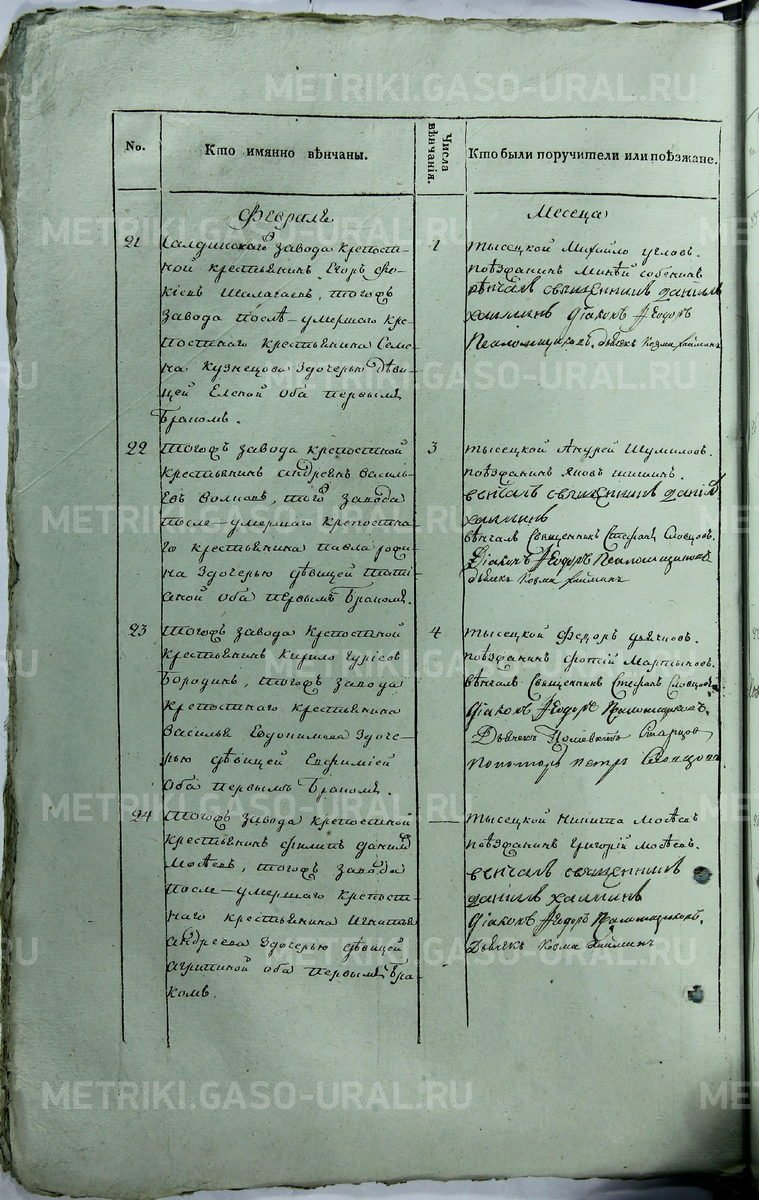 METRIKI.GASO-URAL.RU
No.
Кто имянно вѣнчаны.
Числа вѣнчанія.
Кто были поручители или поѣзжане.
Февраля
Месеца
21
Салдинскаго завода крепост-
ной крестьянинъ Егоръ Фо-
кіевъ Шалагаевъ, тогожъ
завода после-умершаго кре-
постнаго крестьянина Семе-
на Кузнецова здочерью дѣви-
цей Еленой оба первымъ
бракомъ.
1
тысецкой Михайло Угловъ.
поѣзжанинъ Минѣй
вѣнчалъ священникъ Даніилъ
Хаминъ Діаконъ Ѳеодоръ
Псаломщиковъ. дьячекъ Козма
22
тогожъ завода крепостной
крестьянинъ Андреянъ Василь-
евъ Волковъ, того завода
после-умершаго крепостна-
го крестьянина Павла
на здочерью дѣвицей Тати-
аной оба первымъ бракомъ.
3
тысецкой Андрей Шумиловъ.
поѣзжанинъ Яковъ Шишинъ.
венчалъ священникъ Даніилъ
Хаминъ
вѣнчалъ Священникъ Стефанъ Словцовъ.
Діаконъ Ѳеодоръ Псаломщиковъ
дьячекъ Козма
23
тогожъ завода крепостной
крестьянинъ Кирило Гурьевъ
Бородинъ, тогожъ завода
крепостнаго крестьянина
Василья Евдокимова здоче-
рью дѣвицей Евфиміей
оба первымъ бракомъ.
4
тысецкой Федоръ Дьячковъ.
поѣзжанинъ Фотій Мартыновъ.
вѣнчалъ Священникъ Стефанъ Словцовъ.
Діаконъ Ѳеодоръ Псаломщиковъ.
Дьячекъ Старцов
пономарь Петръ Словцовъ
24
тогожъ завода крепостной
крестьянинъ Филипъ Данилов
Мосѣевъ, тогожъ завода
после-умершаго крепост-
наго крестьянина Игнатья
Андреева здочерью дѣвицей
Агрипиной оба первымъ бра-
комъ.
—
тысецкой Никита Мосѣевъ
поѣзжанинъ Григорій Мосѣевъ.
венчалъ священникъ
Даніилъ Хаминъ
Діаконъ Ѳеодоръ Псаломщиковъ.
Дьячекъ Козма